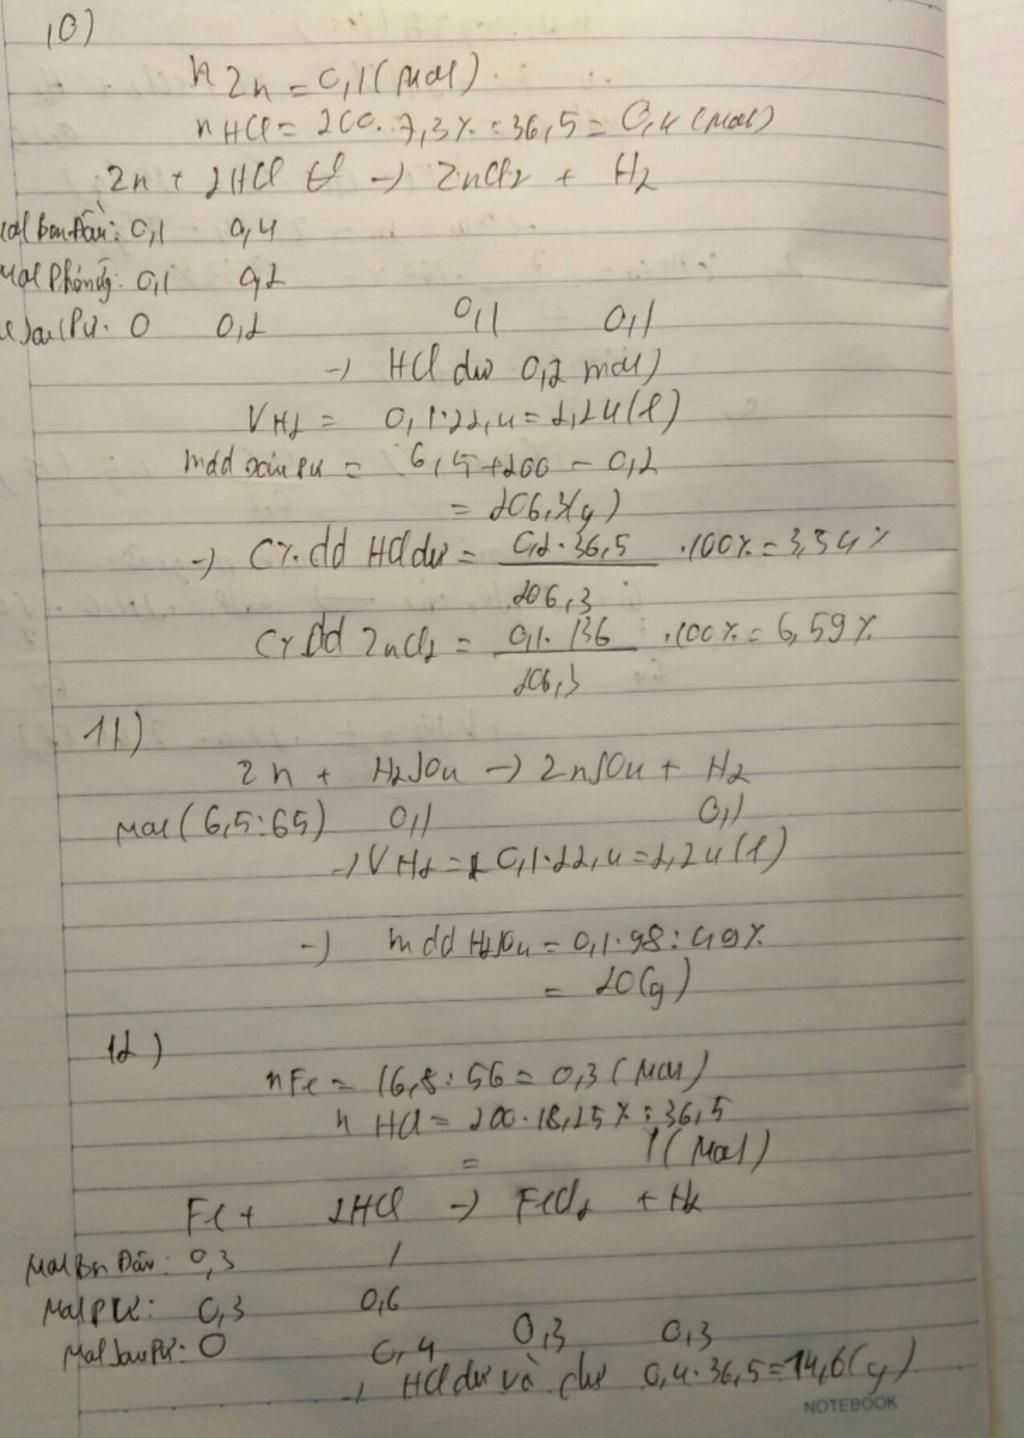 10)
n Zn = 0,1 (mol)
n HCl = 200. 7,3% : 36,5 = 0,4 (mol)
Zn + 2HCl → ZnCl2 + H2
mol ban đầu: 0,1 0,4
mol phản ứng: 0,1 0,2
sau pư: 0 0,2 0,1 0,1
→ HCl dư 0,2 mol)
V H2 = 0,1.22,4 = 2,24 (l)
mdd sau pư = 6,5 + 200 - 0,2
= 206,3(g)
→ C%. dd HCl dư = 0,2.36,5 / 206,3 .100% = 3,54%
C% dd ZnCl2 = 0,1. 136 / 206,3 .100% = 6,59%
11)
Zn + H2SO4 → ZnSO4 + H2
mol (6,5:65) 0,1 0,1
→ V H2 = 0,1.22,4 = 2,24 (l)
→ mdd H2SO4 = 0,1.98 : 49%
= 20(g)
12)
nFe = 16,8 : 56 = 0,3 (mol)
n HCl = 200.18,25% : 36,5
= 1 (mol)
Fe + 2HCl → FeCl2 + H2
mol Bn Đầu: 0,3 1
mol pư: 0,3 0,6
mol sau pư: 0 0,4 0,3 0,3
→ HCl dư và dư 0,4.36,5 = 14,6(g)
NOTEBOOK